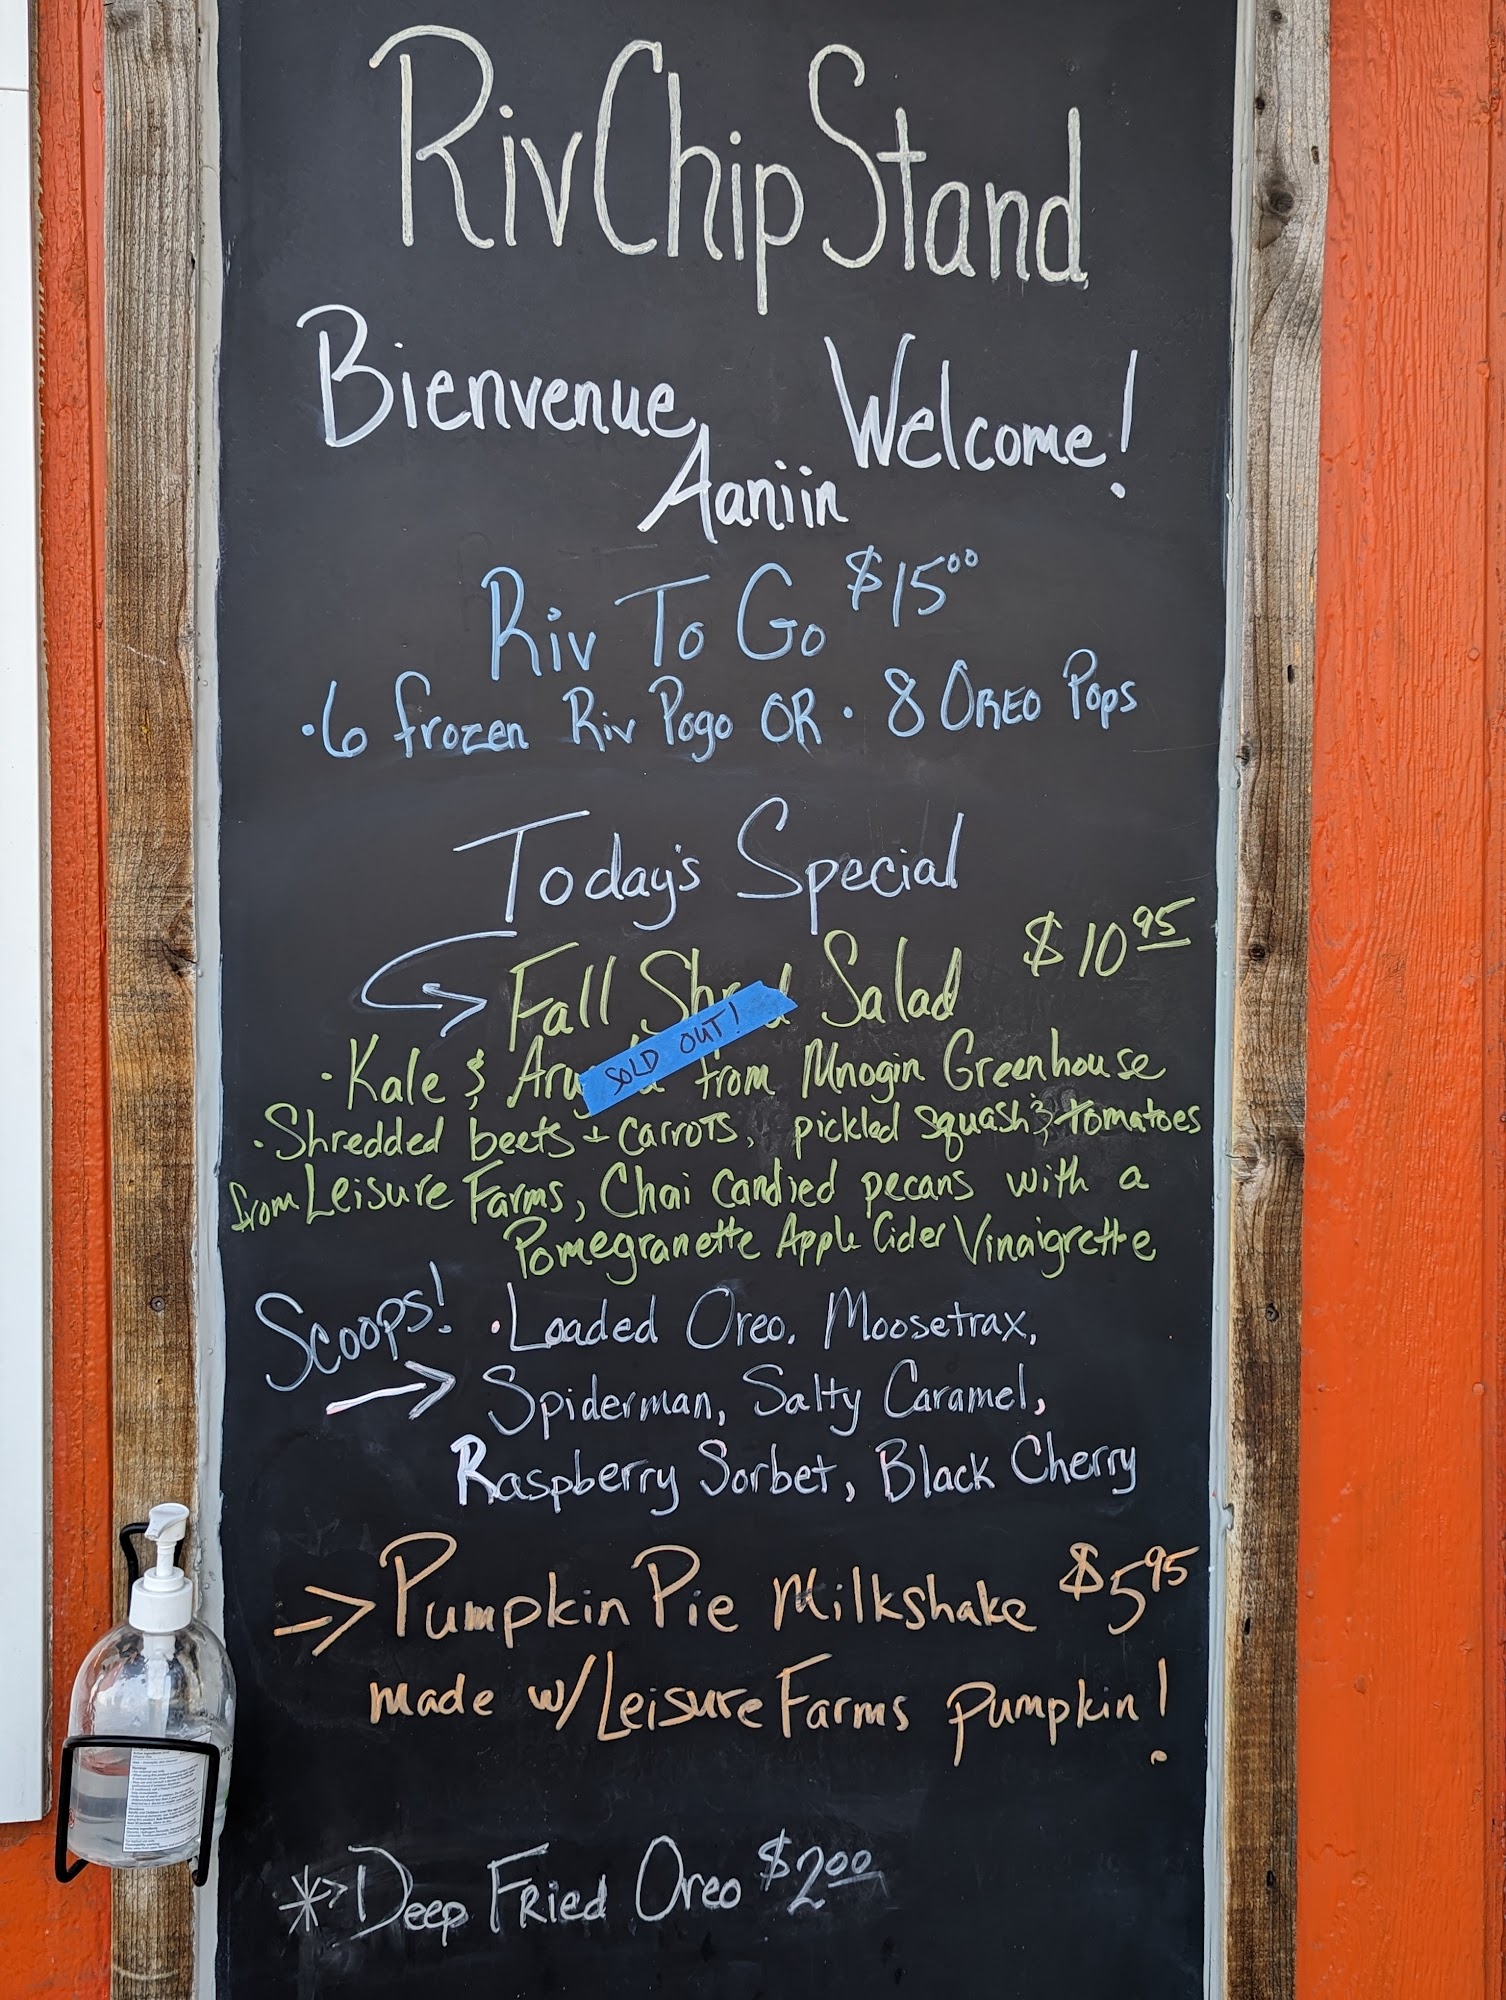 RivChipStand
Bienvenue Welcome!
Aaniin
Riv To Go $15⁰⁰
•6 frozen Riv Pogo OR • 8 OREO Pops
Today's Special
Fall Salad $10⁹⁵
SOLD OUT!
•Kale & from Mnogin Greenhouse
•Shredded beets + carrots, pickled squash & tomatoes
from Leisure Farms, Chai Candied pecans with a
Pomegranette Apple Cider Vinaigrette
Scoops! •Loaded Oreo, Moosetrax,
→ Spiderman, Salty Caramel,
Raspberry Sorbet, Black Cherry
→ Pumpkin Pie Milkshake $5⁹⁵
made w/ Leisure Farms pumpkin!
*→ Deep Fried Oreo $2⁰⁰